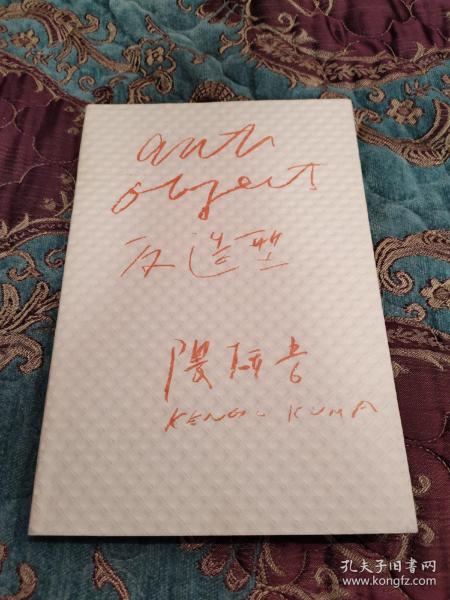 anti
object
反造型
隈研吾
KENGO KUMA
孔夫子旧书网
www.kongfz.com